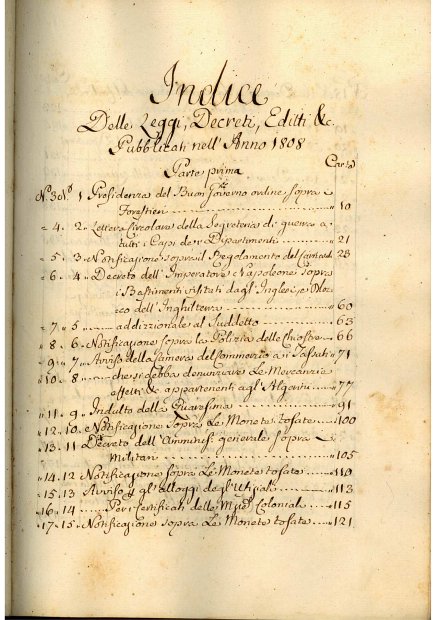 Indice
Delle Leggi, Decreti, Editti &c.
Pubblicati nell' Anno 1808
Parte prima
Carte
N.º 3 N.º 1 Presidenza del Buon Governo ordine sopra i
Forastieri 10
" 4. 2. Lettera Circolare della Segreteria di guerra a
tutti i Capi de' Dipartimenti " 21
" 5. 3 Notificazione sopra il Regolamento del 23
" 6. 4 Decreto dell' Imperatore Napoleone sopra
i Bastimenti visitati dagl' Inglesi, e
dell' Inghilterra " 60
" 7 " 5 addizionale al Suddetto " 63
" 8. 6 Notificazione sopra la Polizia delle " 66
" 9 " 7 Avviso della Camera del Commercio a i " 71
" 10. 8 che si debba denunziare Le Mercanzie
effetti & appartenenti agl' Algerini " 77
" 11. 9. Indulto della Quaresima " 91
" 12. 10. Notificazione Sopra Le Monete tosate " 100
" 13. 11 Decreto dell' Amminis. generale sopra i
Militari " 105
" 14. 12 Notificazione sopra Le Monete tosate " 110
" 15. 13 Avviso gl' alloggi degl' Ufiziali " 113
" 16. 14 Per i Certificati delle Coloniali " 115
" 17. 15 Notificazione sopra Le Monete tosate " 121